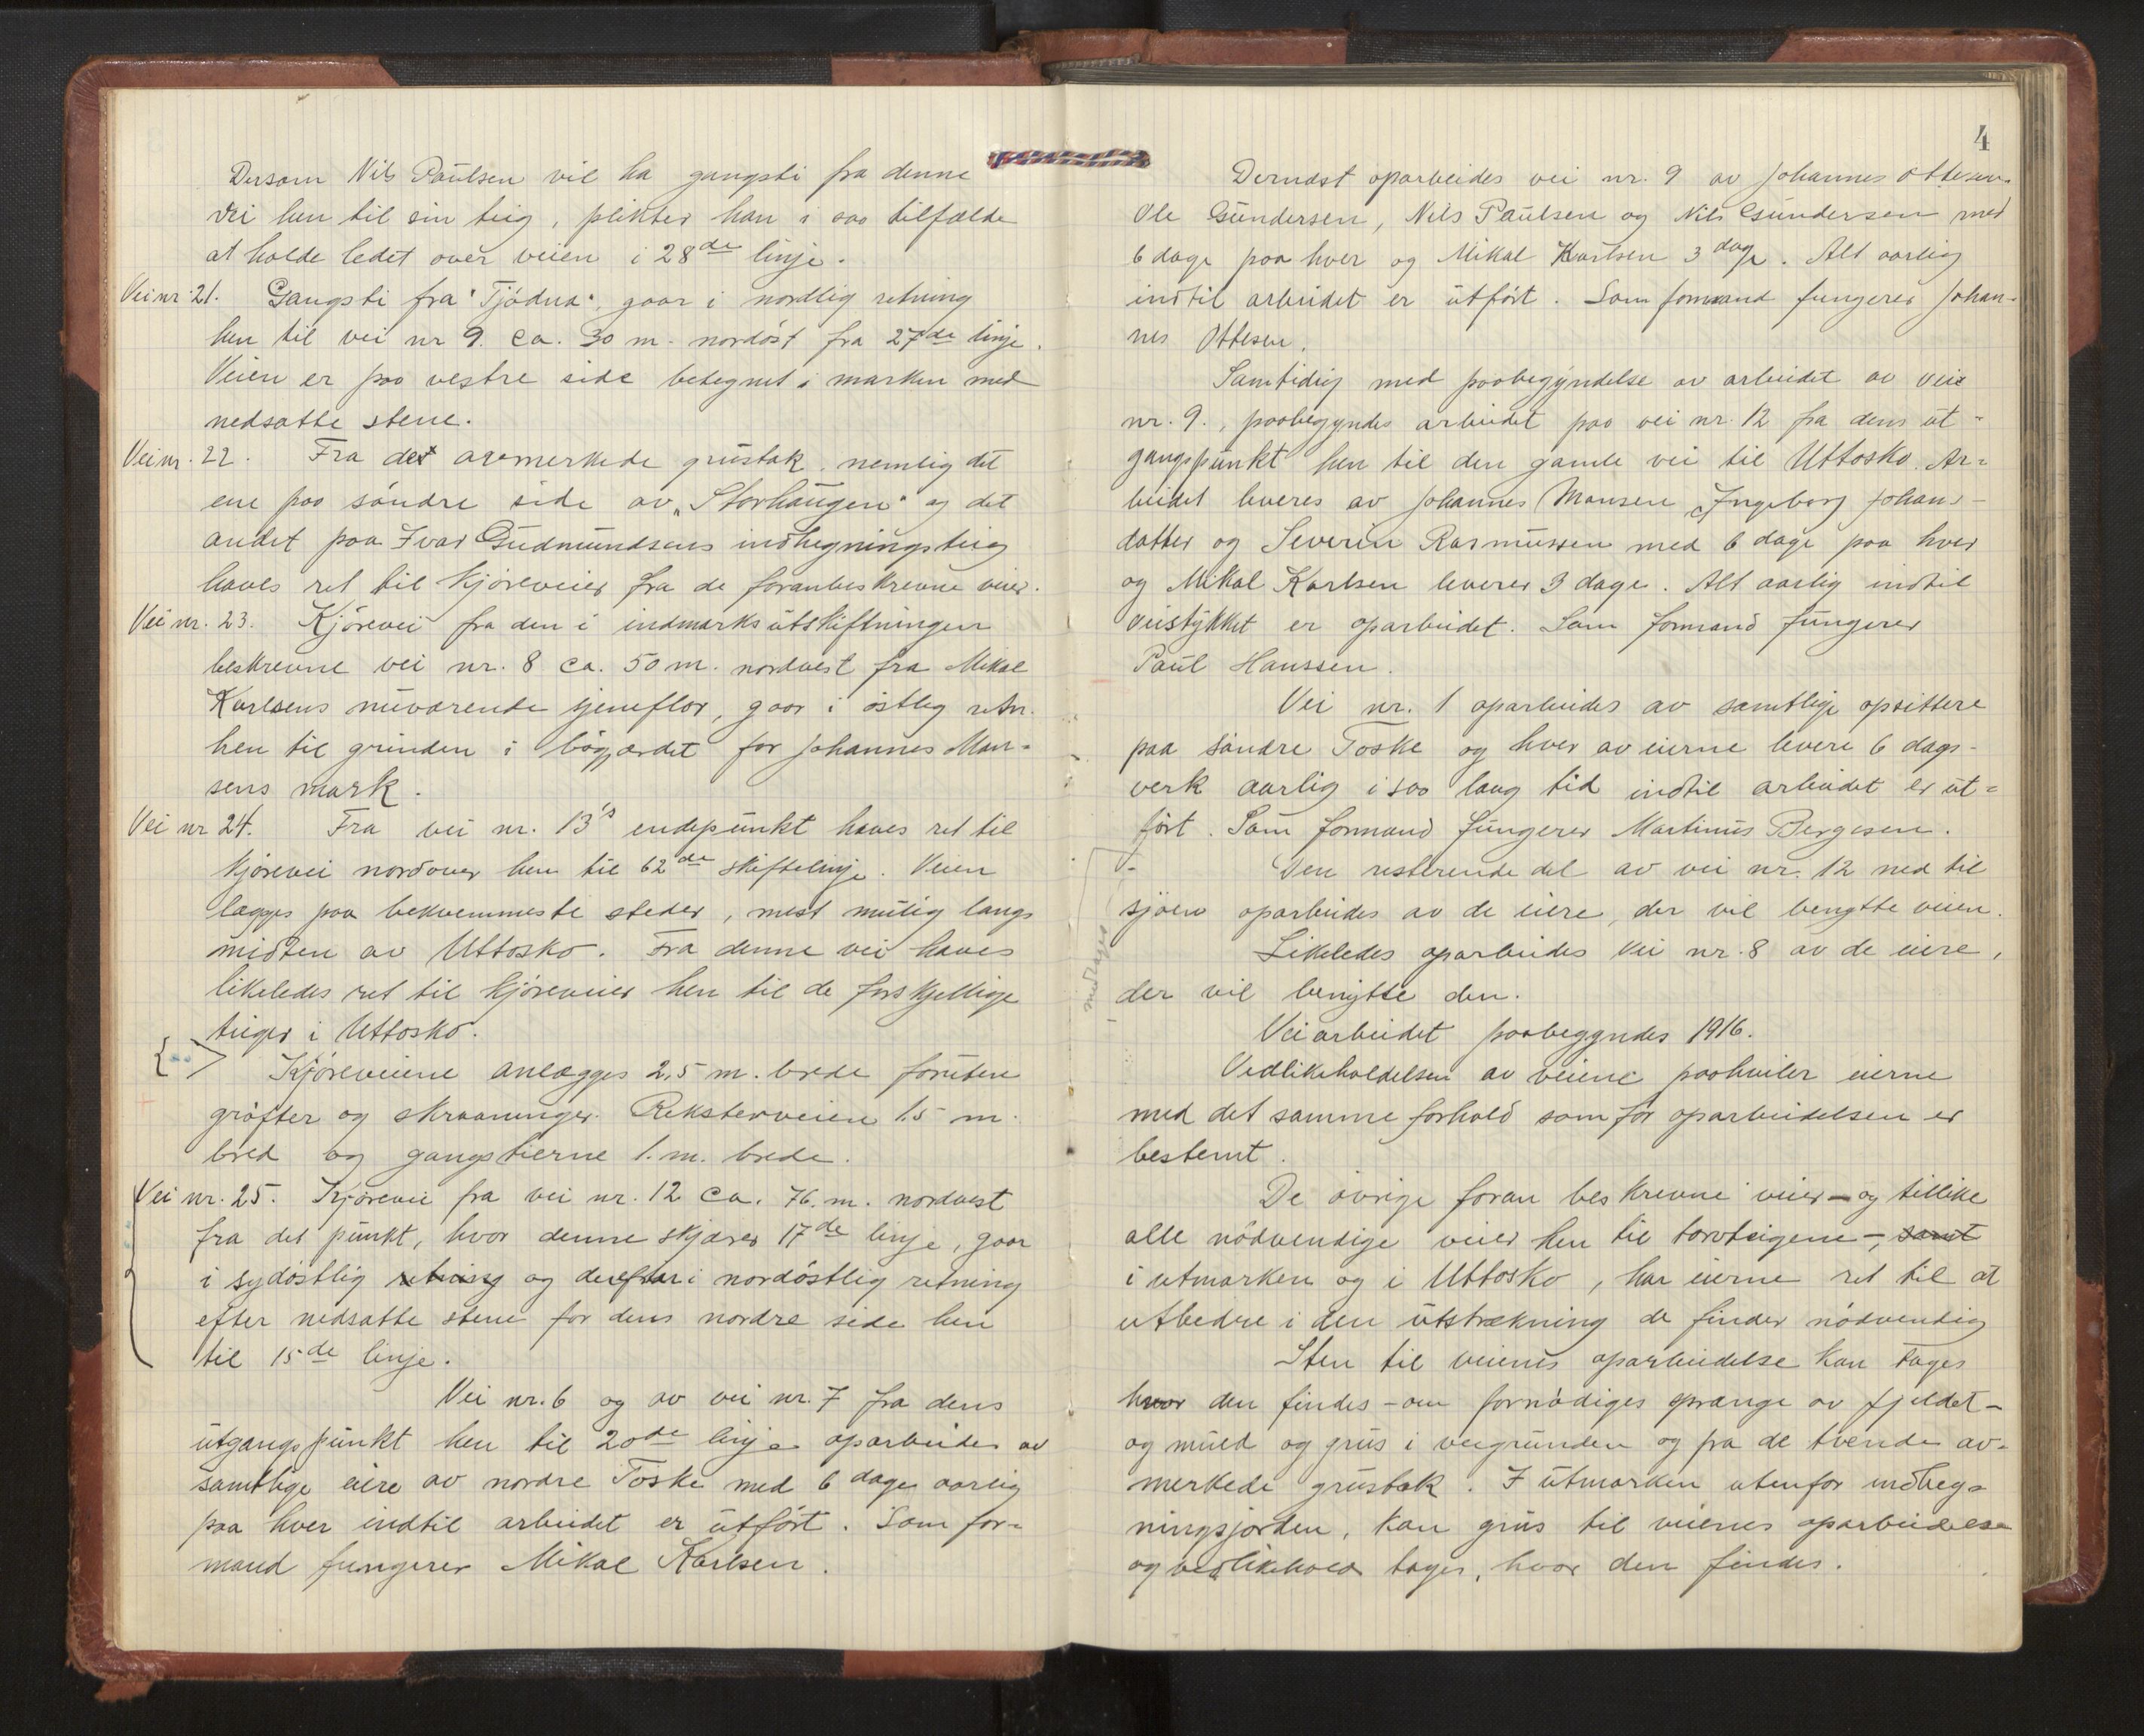 Dersom Nils Paulsen vil ha gangsti fra denne
vei hen til sin teig, plikter han i saa tilfælde
at holde ledet over veien i 28de linje.
Vei nr. 21. Gangsti fra "Tjødna", gaar i nordlig retning
hen til vei nr 9. ca. 30 m. nordøst fra 27de linje.
Veien er paa vestre side betegnet i marken med
nedsatte stene.
Vei nr. 22. Fra det avmerkede grustak, nemlig det
ene paa søndre side av "Storhaugen" og det
andet paa Ivar Gudmundsens indhegningsteig
haves ret til kjøreveier fra de foranbeskrevne veier.
Vei nr. 23. Kjørevei fra den i indmarksutskiftningen
beskrevne vei nr. 8 ca. 50 m. nordvest fra Mikal
Karlsens nuværende sjeneflor, gaar i østlig retn.
hen til grinden i bøgjærdet for Johannes Mon-
sens mark.
Vei nr 24. Fra vei nr. 13's endepunkt haves ret til
kjørevei nordover hen til 62de skiftelinje. Veien
lægges paa bekvemmeste steder, mest mulig langs
midten av Uttosko. Fra denne vei haves
likeledes ret til kjøreveier hen til de forskjellige
teiger i Uttosko.
Kjøreveiene anlægges 2,5 m. brede foruten
grøfter og skraaninger. Reksterveien 1.5 m.
bred og gangstierne 1. m. brede.
Vei nr. 25. Kjørevei fra vei nr. 12 ca. 76. m. nordvest
fra det punkt, hvor denne skjærer 17de linje, gaar
i sydøstlig retning og derefter i nordøstlig retning
efter nedsatte stene for dens nordre side hen
til 15de linje.
Vei nr. 6 og av vei nr. 7 fra dens
utgangspunkt hen til 20de linje oparbeides av
samtlige eiere av nordre Toske med 6 dage aarlig
paa hver indtil arbeidet er utført. Som for-
mand fungerer Mikal Karlsen.
4
Dernæst oparbeides vei nr. 9 av Johannes Ottesen.
Ole Gundersen, Nils Paulsen og Nils Gundersen med
6 dage paa hver og Mikal Karlsen 3 dage. Alt aarlig
indtil arbeidet er utført. Som formand fungerer Johan-
nes Ottesen.
Samtidig med paabegyndelse av arbeidet av vei
nr. 9., paabegyndes arbeidet paa vei nr. 12 fra dens ut-
gangspunkt hen til den gamle vei til Uttosko. Ar-
beidet leveres av Johannes Monsen, Ingeborg Johans-
datter og Severin Rasmussen med 6 dage paa hver
og Mikal Karlsen leverer 3 dage. Alt aarlig indtil
veistykket er oparbeidet. Som formand fungerer
Paul Hanssen.
Vei nr. 1 oparbeides av samtlige opsittere
paa søndre Toske og hver av eierne levere 6 dags-
verk aarlig i saa lang tid indtil arbeidet er ut-
ført. Som formand fungerer Martinus Bergesen.
Den resterende del av vei nr. 12 ned til
sjøen oparbeides av de eiere, der vil benytte veien.
Likeledes oparbeides vei nr. 8 av de eiere,
der vil benytte den.
Veiarbeidet paabegyndes 1916.
Vedlikeholdelsen av veiene paahviler eierne
med det samme forhold som for oparbeidelsen er
bestemt.
De øvrige foran beskrevne veier – og tillike
alle nødvendige veier hen til torvteigene –, samt
i utmarken og i Uttosko, har eierne ret til at
utbedre i den utstrækning de finder nødvendig
Sten til veienes oparbeidelse kan tages
hvor den findes – om fornødiges sprænge av fjeldet –
og muld og grus i veigrunden og fra de tvende av-
merkede grustak. I utmarken utenfor indheg-
ningsjorden, kan grus til veienes oparbeidelse
og vedlikehold tages, hvor den findes.